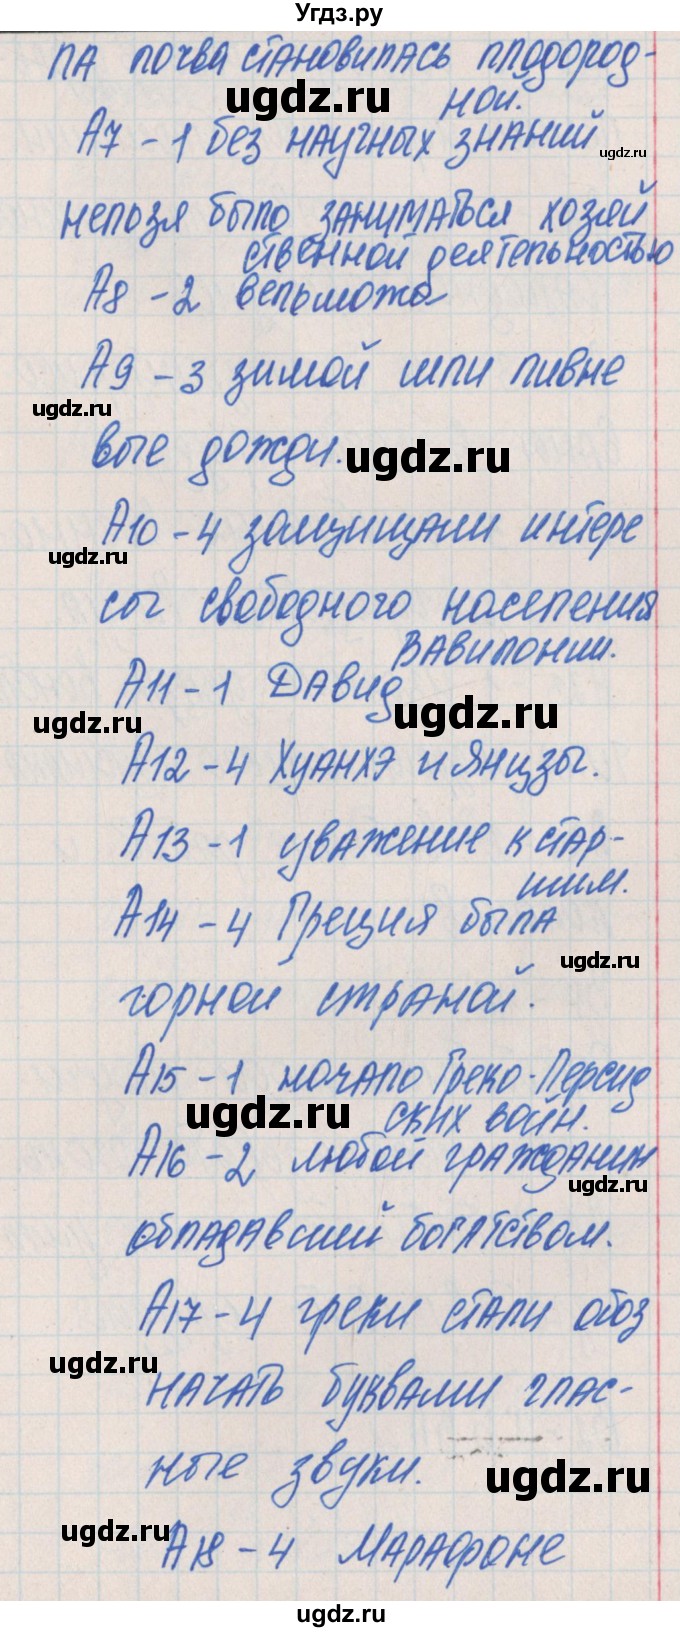 Угдз.ру
ла почва становилась плодород-
ной.
ugdz.ru
А7 - 1 без научных знаний
ugdz.ru
нельзя было заниматься хозяй
ственной деятельностью
А8 - 2 вельможа
А9 - 3 зимой шли ливне
ugdz.ru
вые дожди.
ugdz.ru
А10 - 4 защищали интере
ugdz.ru
сы свободного населения
Вавилонии.
А11 - 1 Давид
ugdz.ru
ugdz.ru
А12 - 4 Хуанхэ и Янцзы.
А13 - 1 уважение к стар-
шим.
А14 - 4 Греция была
ugdz.ru
горной страной.
А15 - 1 начало Греко-Персид
ских войн.
ugdz.ru
А16 - 2 любой гражданин
ugdz.ru
обладавший богатством.
А17 - 4 греки стали обоз
ugdz.ru
начать буквами глас-
ные звуки.
ugdz.ru
ugdz.ru
А18 - 4 Марафоне
ugdz.ru